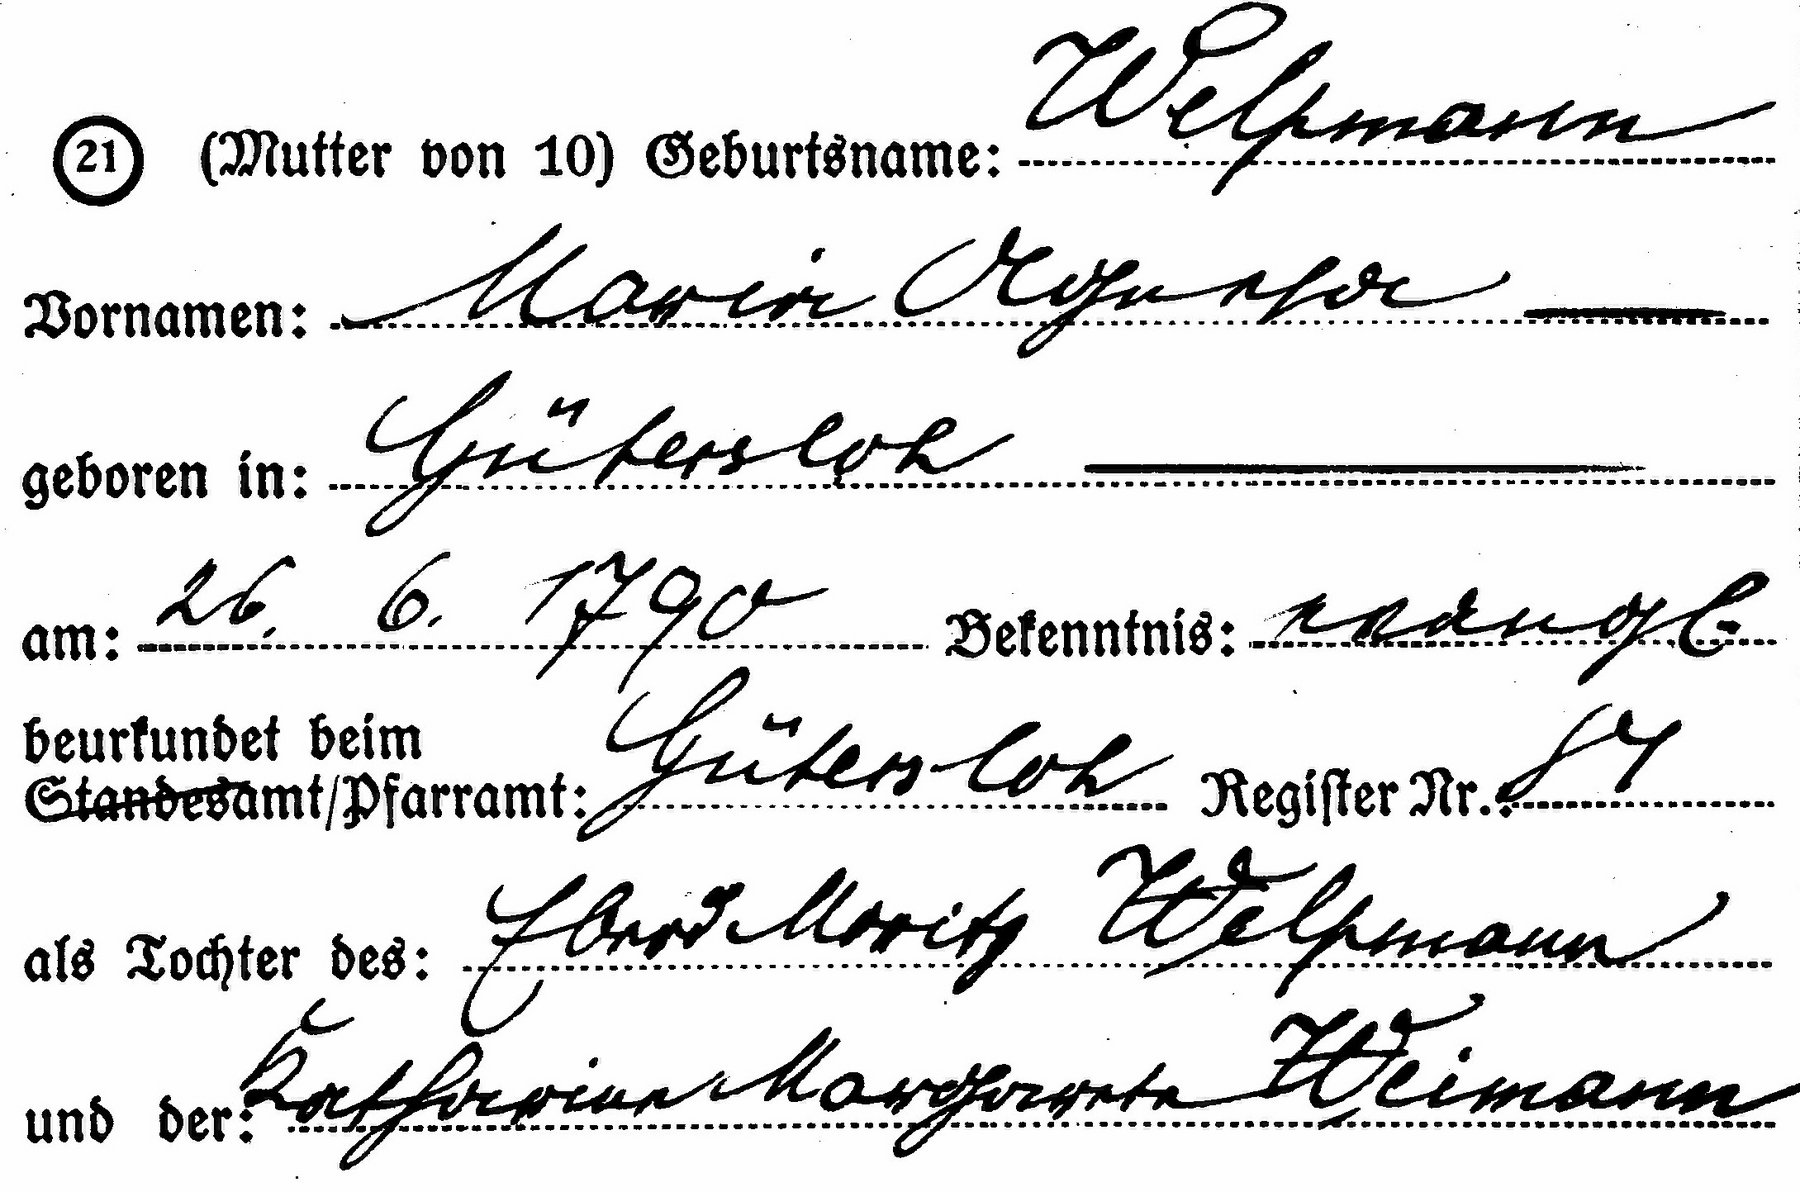 21 (Mutter von 10) Geburtsname: Welpmann
Vornamen: Maria Agnesa
geboren in: Gütersloh
am: 26. 6. 1790 Bekenntnis: evangl.
beurkundet beim
Standesamt/Pfarramt: Gütersloh Register Nr.: 84
als Tochter des: Eberd Moritz Welpmann
und der: Katharine Margarete Weimann